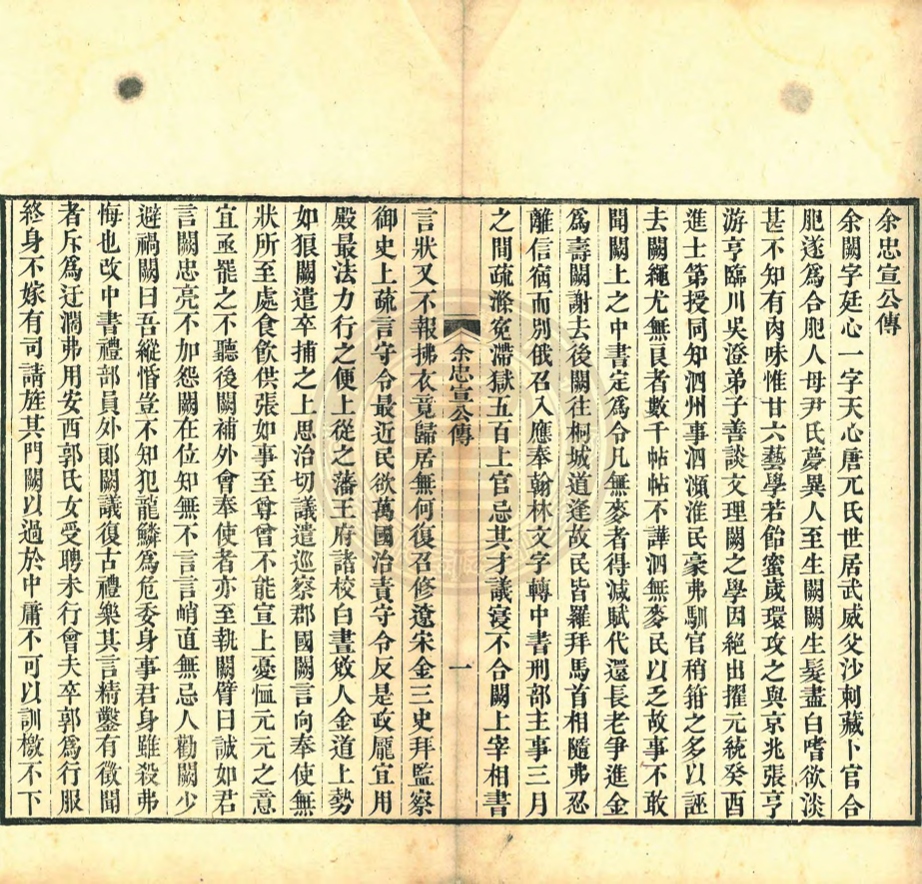 余忠宣公傳
余闕字廷心一字天心唐兀氏世居武威父沙剌藏卜官合
肥遂爲合肥人母尹氏夢異人至生闕闕生髮盡白嗜欲淡
甚不知有肉味惟甘六藝學若飴蜜歲環攻之與京兆張亨
游亨臨川吳澄弟子善談文理闕之學因絕出擢元統癸酉
進士第授同知泗州事泗瀕淮民豪弗馴官稍箝之多以誣
去闕繩尤無良者數千帖帖不譁泗無麥民以乏故事不敢
聞闕上之中書定爲令凡無麥者得減賦代還長老爭進金
爲壽闕謝去後闕往桐城道逢故民皆羅拜馬首相隨弗忍
離信宿而別俄召入應奉翰林文字轉中書刑部主事三月
之間疏滌冤滯獄五百上官忌其才議寖不合闕上宰相書
余忠宣公傳
一
言狀又不報拂衣竟歸居無何復召修遼宋金三史拜監察
御史上疏言守令最近民欲萬國治責守令反是政龐宜用
殿最法力行之便上從之藩王府諸校白晝斂人金道上勢
如狼闕遣卒捕之上思治切議遣巡察郡國闕言向奉使無
狀所至處食飲供張如事至尊曾不能宣上憂恤元元之意
宜亟罷之不聽後闕補外會奉使者亦至執闕臂曰誠如君
言闕忠亮不加怨闕在位知無不言言峭直無忌人勸闕少
避禍闕曰吾縱惛豈不知犯龍鱗爲危委身事君身雖殺弗
悔也改中書禮部員外郎闕議復古禮樂其言精鑿有徵聞
者斥爲迂濶弗用安西郭氏女受聘未行會夫卒郭爲行服
終身不嫁有司請旌其門闕以過於中庸不可以訓檄不下